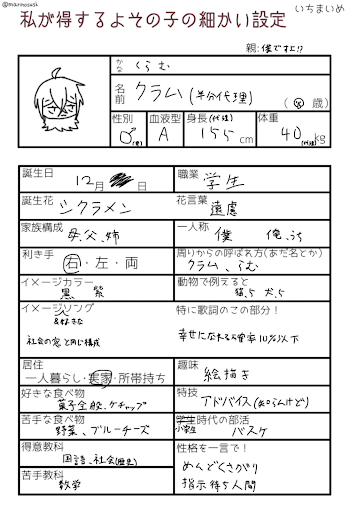 @marinosuki
いちまいめ
私が得するよその子の細かい設定
親:僕ですヒ!?
かな くらむ
名前 クラム(半分代理)
( 歳)
性別 ♂
血液型 A
身長(代理) 155 cm
体重 40 kg
(代理)
誕生日 12月 日
職業 学生
誕生花 シクラメン
花言葉 遠慮
家族構成 母、父、姉
一人称 僕 俺、うち
利き手 右・左・両
周りからの呼ばれ方(あだ名とか) クラム、らむ
イメージカラー 黒 紫
動物で例えると 猫、犬、
イメージソング
&好きな
社会の窓と同じ構成
特に歌詞のこの部分!
幸せになれる確率10%以下
居住 一人暮らし・実家・所帯持ち
趣味 絵描き
好きな食べ物 菓子全般、ケチャップ
特技 アドバイス(知らんけど)
苦手な食べ物 野菜、ブルーチーズ
学生時代の部活 バスケ
小学生
得意教科 国語、社会(歴史)
性格を一言で!
めんどくさがり
指示待ち人間
苦手教科 数学